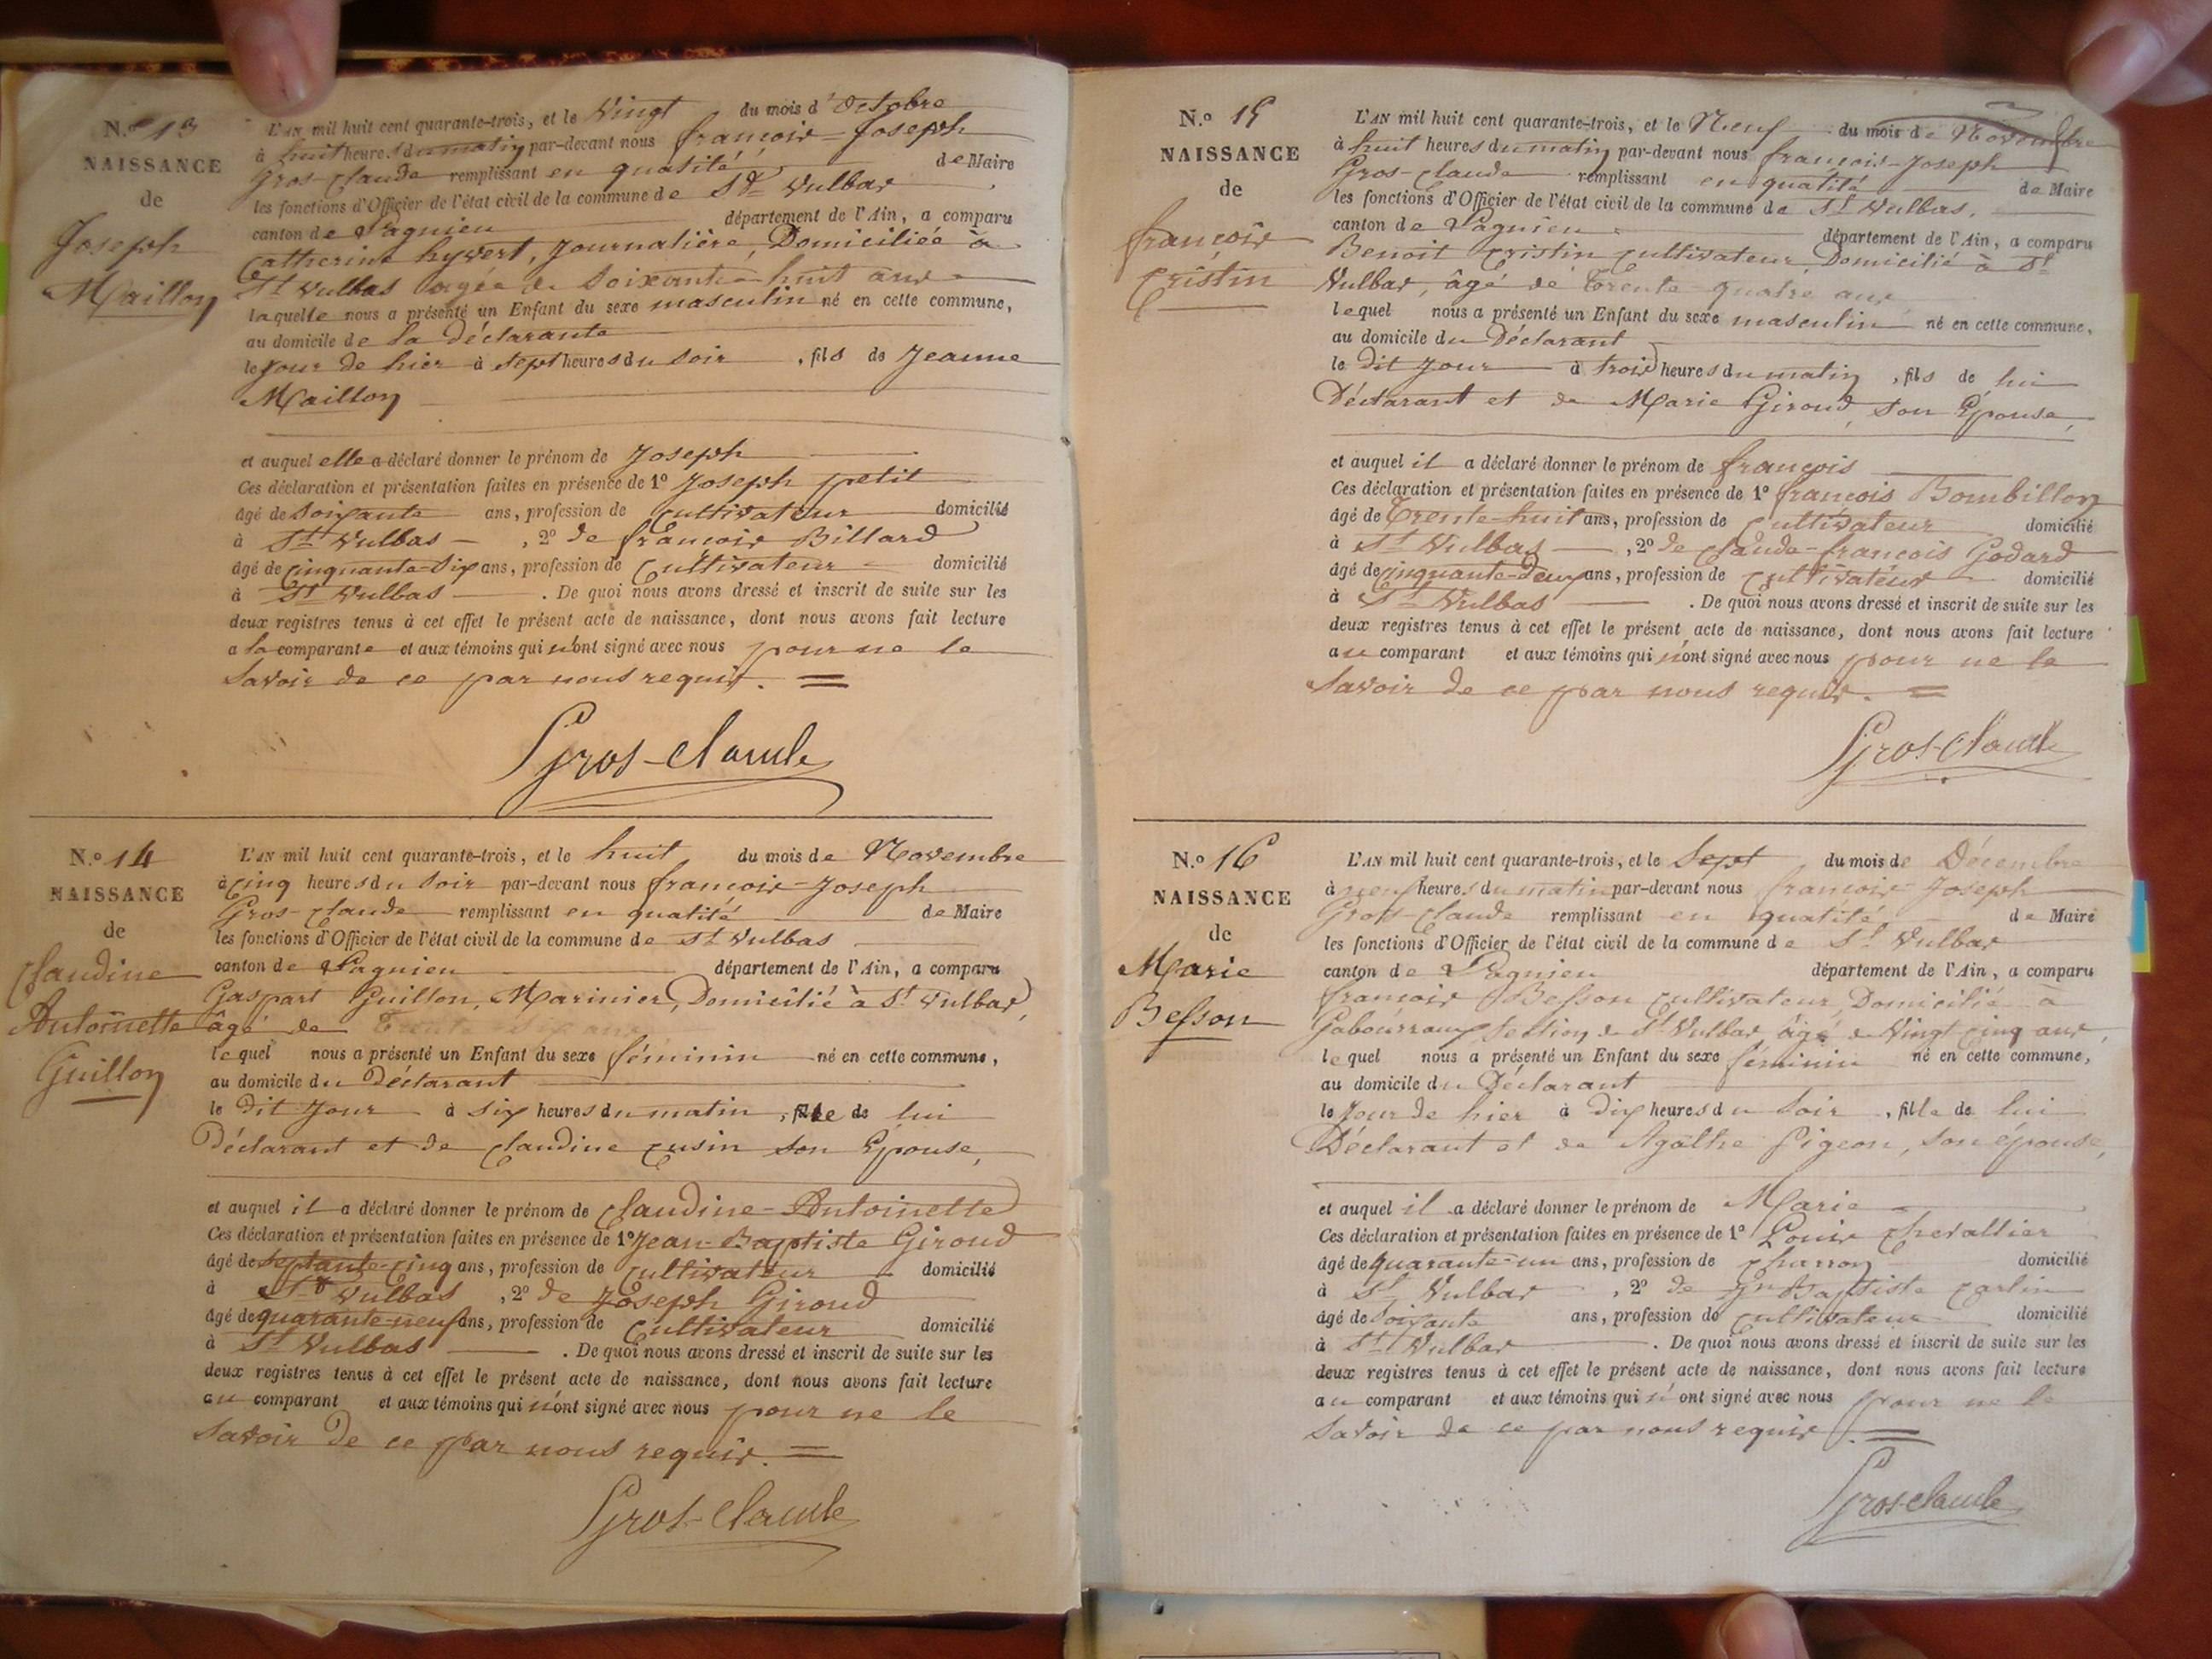 N.º 13
NAISSANCE
de
Joseph
Maillon
L'AN mil huit cent quarante-trois, et le Vingt du mois d'Octobre
à huit heures du matin par-devant nous françois-Joseph
Gros-claude remplissant en qualité de Maire
les fonctions d'Officier de l'état civil de la commune de St Vulbas
canton de Lagnieu département de l'Ain, a comparu
Catherine hyvert, Journalière, Domiciliée à
St Vulbas agée de Soixante-huit ans
laquelle nous a présenté un Enfant du sexe masculin né en cette commune,
au domicile de la déclarante
le Jour de hier à sept heures du soir, fils de Jeanne
Maillon
et auquel elle a déclaré donner le prénom de Joseph
Ces déclaration et présentation faites en présence de 1º Joseph petit
âgé de soixante ans, profession de Cultivateur domicilié
à St Vulbas, 2º de françois Billard
âgé de Cinquante-Six ans, profession de Cultivateur domicilié
à St Vulbas. De quoi nous avons dressé et inscrit de suite sur les
deux registres tenus à cet effet le présent acte de naissance, dont nous avons fait lecture
a la comparante et aux témoins qui n'ont signé avec nous pour ne le
Savoir de ce par nous requis. =
Gros-claude
N.º 14
NAISSANCE
de
Claudine
Antoinette
Guillon
L'AN mil huit cent quarante-trois, et le huit du mois de Novembre
à cinq heures du soir par-devant nous françois-Joseph
Gros-claude remplissant en qualité de Maire
les fonctions d'Officier de l'état civil de la commune de St Vulbas
canton de Lagnieu département de l'Ain, a comparu
Gaspart Guillon, Marinier, Domicilié à St Vulbas,
âgé de Trente Six ans
lequel nous a présenté un Enfant du sexe féminin né en cette commune,
au domicile du Déclarant
le dit Jour à six heures du matin, fille de lui
Déclarant et de Claudine Cusin son Epouse,
et auquel il a déclaré donner le prénom de Claudine-Antoinette
Ces déclaration et présentation faites en présence de 1º Jean-Baptiste Giroud
âgé de septante-cinq ans, profession de Cultivateur domicilié
à St Vulbas, 2º de Joseph Giroud
âgé de quarante-neuf ans, profession de Cultivateur domicilié
à St Vulbas. De quoi nous avons dressé et inscrit de suite sur les
deux registres tenus à cet effet le présent acte de naissance, dont nous avons fait lecture
au comparant et aux témoins qui n'ont signé avec nous pour ne le
Savoir De ce par nous requis. =
Gros-Claude
N.º 15
NAISSANCE
de
françois
Cristin
L'AN mil huit cent quarante-trois, et le Neuf du mois de Novembre
à huit heures du matin par-devant nous françois-Joseph
Gros-claude remplissant en qualité de Maire
les fonctions d'Officier de l'état civil de la commune de St Vulbas.
canton de Lagnieu département de l'Ain, a comparu
Benoit Cristin Cultivateur, Domicilié à St
Vulbas, âgé de Trente-quatre ans
lequel nous a présenté un Enfant du sexe masculin né en cette commune,
au domicile du Déclarant
le dit Jour à trois heures du matin, fils de lui
Déclarant et de Marie Giroud, son Epouse,
et auquel il a déclaré donner le prénom de françois
Ces déclaration et présentation faites en présence de 1º françois Bombillon
âgé de Trente-huit ans, profession de Cultivateur domicilié
à St Vulbas, 2º de Claude-francois Godard
âgé de cinquante-deux ans, profession de Cultivateur domicilié
à St Vulbas. De quoi nous avons dressé et inscrit de suite sur les
deux registres tenus à cet effet le présent acte de naissance, dont nous avons fait lecture
au comparant et aux témoins qui n'ont signé avec nous pour ne le
Savoir de ce par nous requis. =
Gros-Claude
N.º 16
NAISSANCE
de
Marie
Besson
L'AN mil huit cent quarante-trois, et le Sept du mois de Décembre
à neuf heures du matin par-devant nous françois Joseph
Gros-claude remplissant en qualité de Maire
les fonctions d'Officier de l'état civil de la commune de St Vulbas
canton de Lagnieu département de l'Ain, a comparu
françois Besson Cultivateur, Domicilié à
Gabourraux section de St Vulbas âgé de Vingt cinq ans,
lequel nous a présenté un Enfant du sexe féminin né en cette commune,
au domicile du Déclarant
le Jour de hier à dix heures du soir, fille de lui
Déclarant et de Agathe Pigeon, son épouse,
et auquel il a déclaré donner le prénom de Marie
Ces déclaration et présentation faites en présence de 1º Louis Chevallier
âgé de quarante-un ans, profession de Charron domicilié
à St Vulbas, 2º de Jn Baptiste Carlin
âgé de Soixante ans, profession de Cultivateur domicilié
à St Vulbas. De quoi nous avons dressé et inscrit de suite sur les
deux registres tenus à cet effet le présent acte de naissance, dont nous avons fait lecture
au comparant et aux témoins qui n'ont signé avec nous pour ne le
Savoir de ce par nous requis. =
Gros-claude